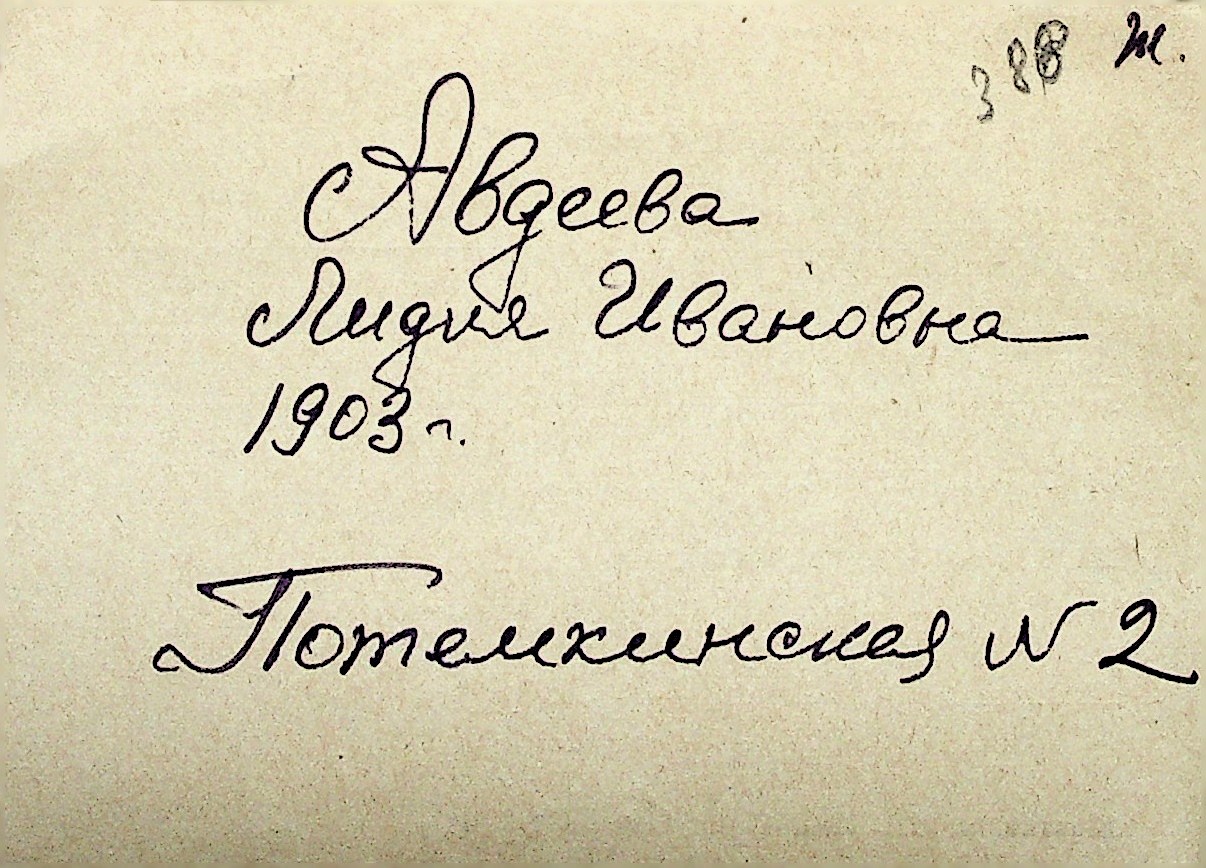 388 Ж.
Авдеева
Лидия Ивановна
1903 г.
Потемкинская N 2